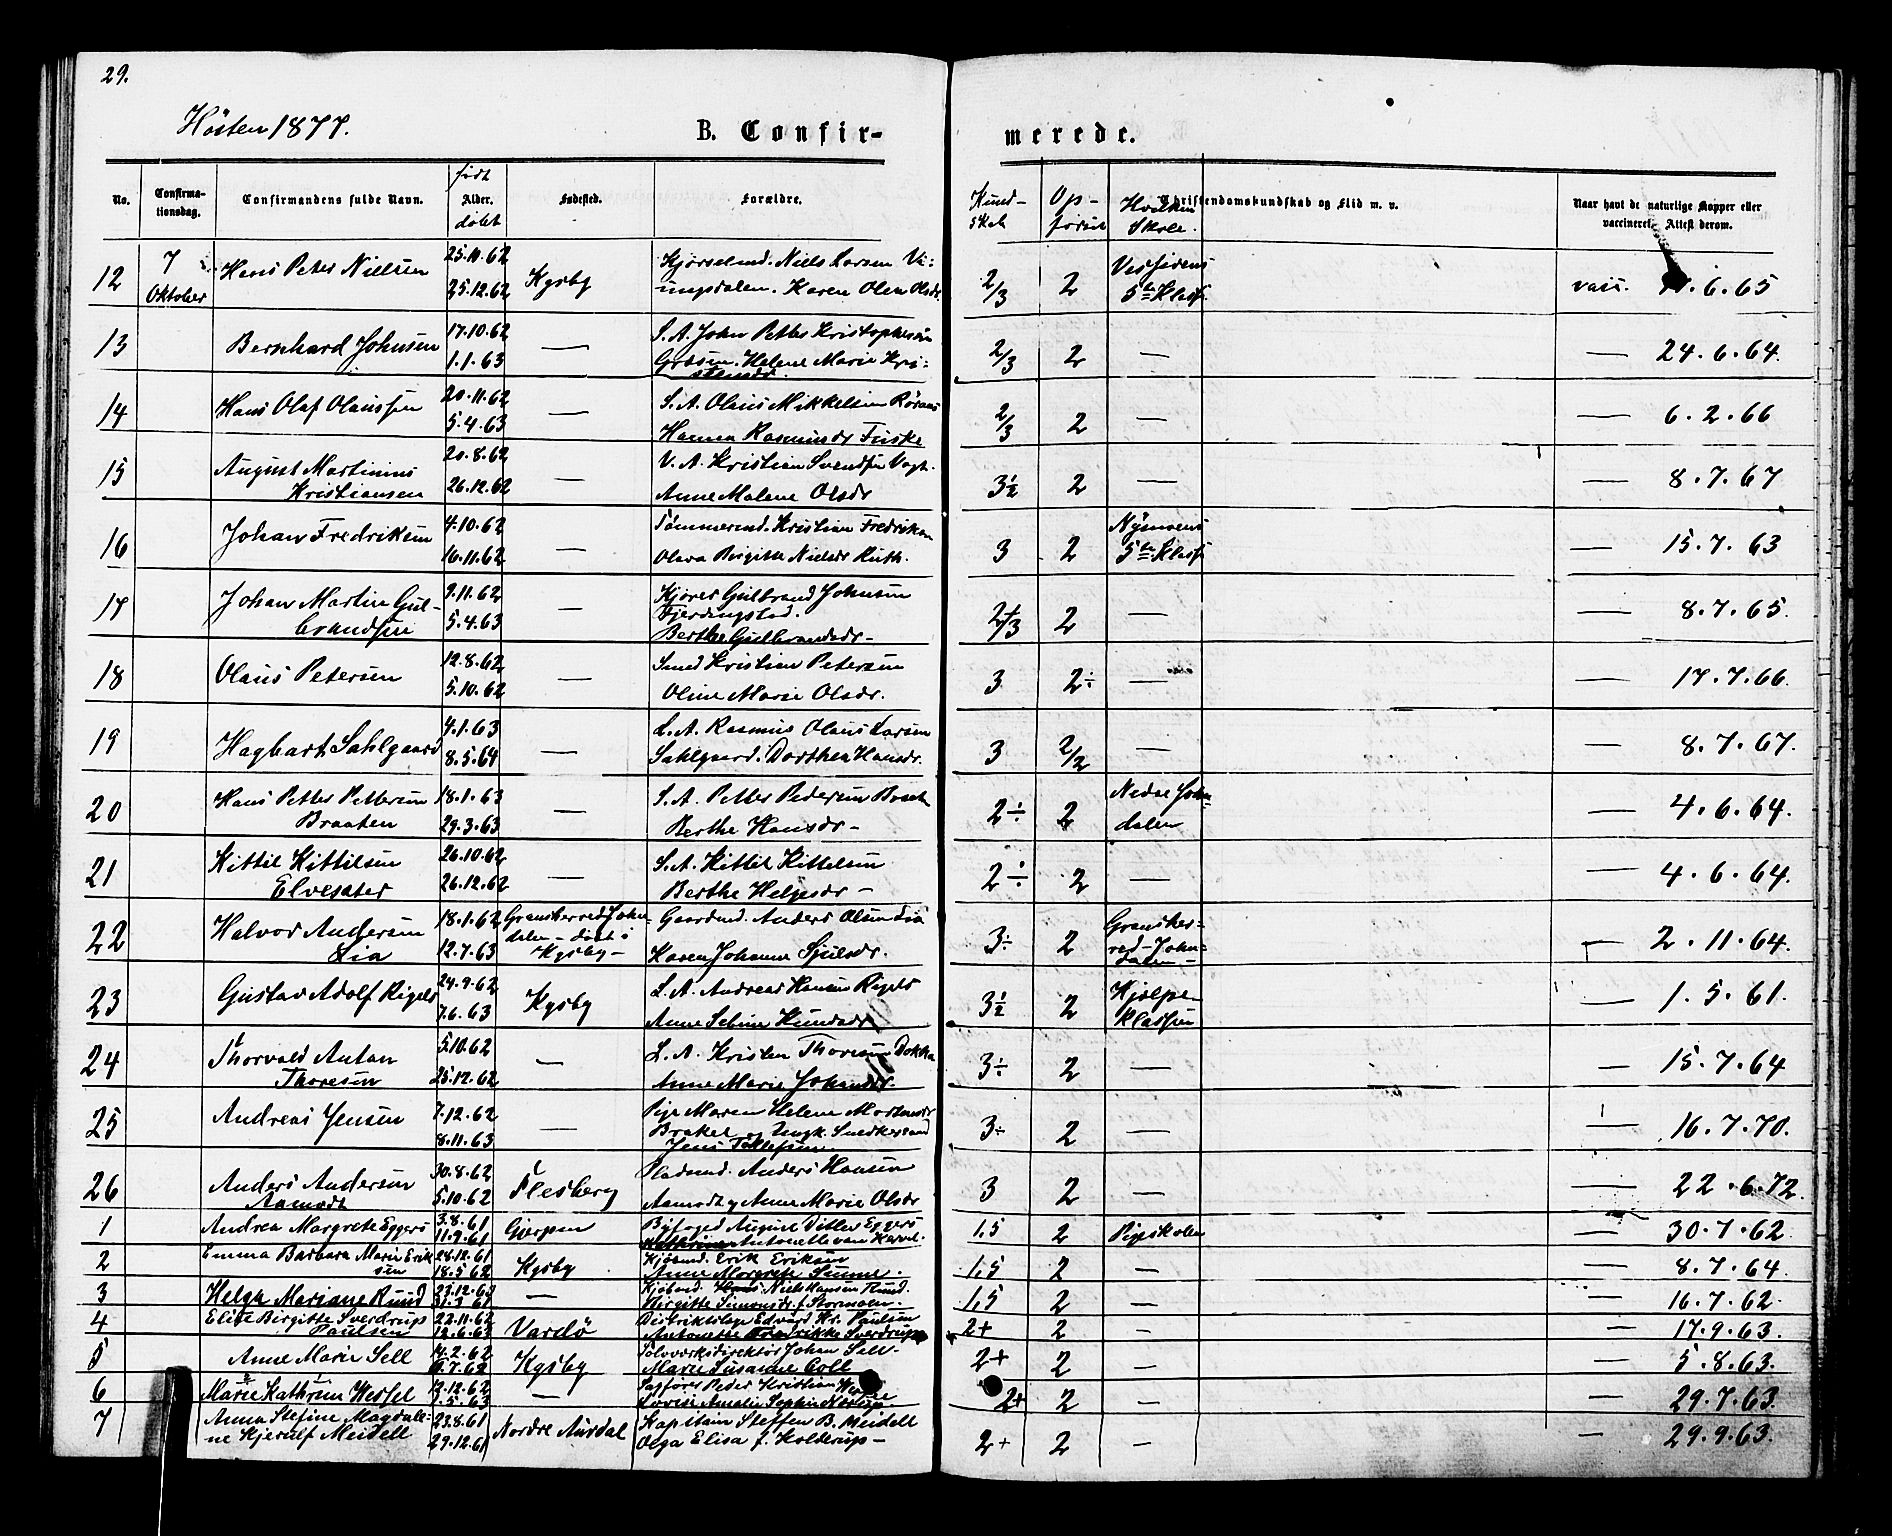 29.
Hösten 1877.
B. Confir-
merede.
No.
Confirma-
tionsdag.
Confirmandens fulde Navn.
født
Alder.
døbt
Fødested.
Forældre.
Kund-
skab
Op-
førsel
Hvilken
Skole.
Christendomskundskab og Flid m. v.
Naar havt de naturlige Kopper eller
vaccineret. Attest derom.
12 7 Oktober Hans Peter Nielsen 25.10.62
25.12.62 Kgsby Niels Larsen
Karen Olea Olsdr. 2/3 2 5te Klasse vacc. 6.65
13 Bernhard Johnsen 17.10.62
1.1.63 — S. A. John Petter Kristophersen
Helene Marie Kri-
stensdr. 2/3 2 — — 24.6.64.
14 Hans Olaf Olaussen 20.11.62
5.4.63 — S. A. Olaus Mikkelsen
Rasmusdr Fiske 2/3 2 — — 6.2.66
15 August Martinius
Kristiansen 20.8.62
26.12.62 — V. A. Kristian Svendsen Vogt.
Anne Malene Olsdr 3½ 2 — — 8.7.67
16 Johan Fredriksen 4.10.62
16.11.62 — Tømmermd. Kristian Fredriksen
Olava Birgitte Nielsdr Ruth. 3 2 5te Klasse — 15.7.63
17 Johan Martin Gul-
brandsen 9.11.62
5.4.63 — Kjører Gulbrand Johnsen
Fjerdingstad.
Berthe Gulbrandsdr — 2+/3 2 — — 8.7.65.
18 Olaus Petersen 12.8.62
5.10.62 — Smed Kristian Petersen
Oline Marie Olsdr. 3 2÷ — — 17.7.66.
19 Hagbart Sahlgaard 4.1.63
8.5.64 — L. A. Rasmus Olaus Larsen
Sahlgaard. Dorthea Hansdr. 3 2/2 — — 8.7.67.
20 Hans Petter Pettersen
Braaten 18.1.63
29.3.63 — S. A. Petter Pedersen
Berthe Hansdr — 2÷ 2 Nedre John-
dalen — 4.6.64.
21 Kittil Kittilsen
Elvesæter 26.10.62
26.12.62 — S. A. Kittil Kittelsen
Berthe Helgesdr — 2÷ 2 — — 4.6.64.
22 Halvor Andersen
Lia 18.1.62
12.7.63 Gransherred John-
dalen - døbt i
Kgsby — Gaardmd. Anders Olsen Lia
Karen Johanne Sjulsdr. 3÷ 2 Gransher-
red - John-
dalen — — 2.11.64.
23 Gustav Adolf Rigels 24.9.62
7.6.63 Kgsby L. A. Andreas Hansen Rigels
Anne Seline Knudsdr 3½ 2 Hjælpe-
klassen — 1.5.61.
24 Thorvald Anton
Thoresen 5.10.62
25.12.62 — L. A. Kristen Thoresen Dokka
Anne Marie Johansdr. 3÷ 2 — — 15.7.64
25 Andreas Jensen 7.12.62
8.11.63 — Pige Maren Helene Mortensdr
Brakel og Ungk. Snedkersvend
Jens Tollefsen 3÷ 2 — — 16.7.70.
26 Anders Andersen
Aamodt 30.8.62
5.10.62 Flesberg Pladsmd. Anders Hansen
Aamodt og Anne Marie Olsdr 3 2 — — 22.6.72.
1 Andrea Margrete Eggers 3.8.61
11.9.61 Gjerpen Byfoged August Ditlev Eggers
Antonette van 1,5 2 Pigeskolen — 30.7.62.
2 Emma Barbara Marie Erik
sen 28.12.61
18.5.62 Kgsby Kjøbmd. Erik Eriksen
Anne Margrete 1,5 2 — — 8.7.64.
3 Helga Mariane Ruud — Kjøbmd. Niels Hansen Ruud.
Birgitte Simonsdr. f. 1,5 2 — — 16.7.62.
4 Elise Birgitte Sverdrup
Paulsen 22.11.62
12.6.63 Vardö Distriktslæge Edvard Kr. Paulsen
Antonette Fredrikke Sverdrup 2+ 2 — — 17.9.63.
5 Anne Marie Sell 14.2.62
6.7.62 Kgsby Sølvværksdirektör Johan Sell.
Marie Susanne Coll 2+ 2 — — 5.8.63.
6 Marie Kathrine Wessel 12.12.62
3.5.63 — Sagfører Peder Kristian Wessel
Lovise Amalie Sophie 2+ 2 — — 29.7.63.
7 Anna Stefine Magdale-
ne Kjerulf Meidell 23.8.61
29.12.61 Nordre Aurdal Kapitain Steffen B. Meidell
Olga Elisa f. Holderup — 2+ 2 — — 29.9.63.